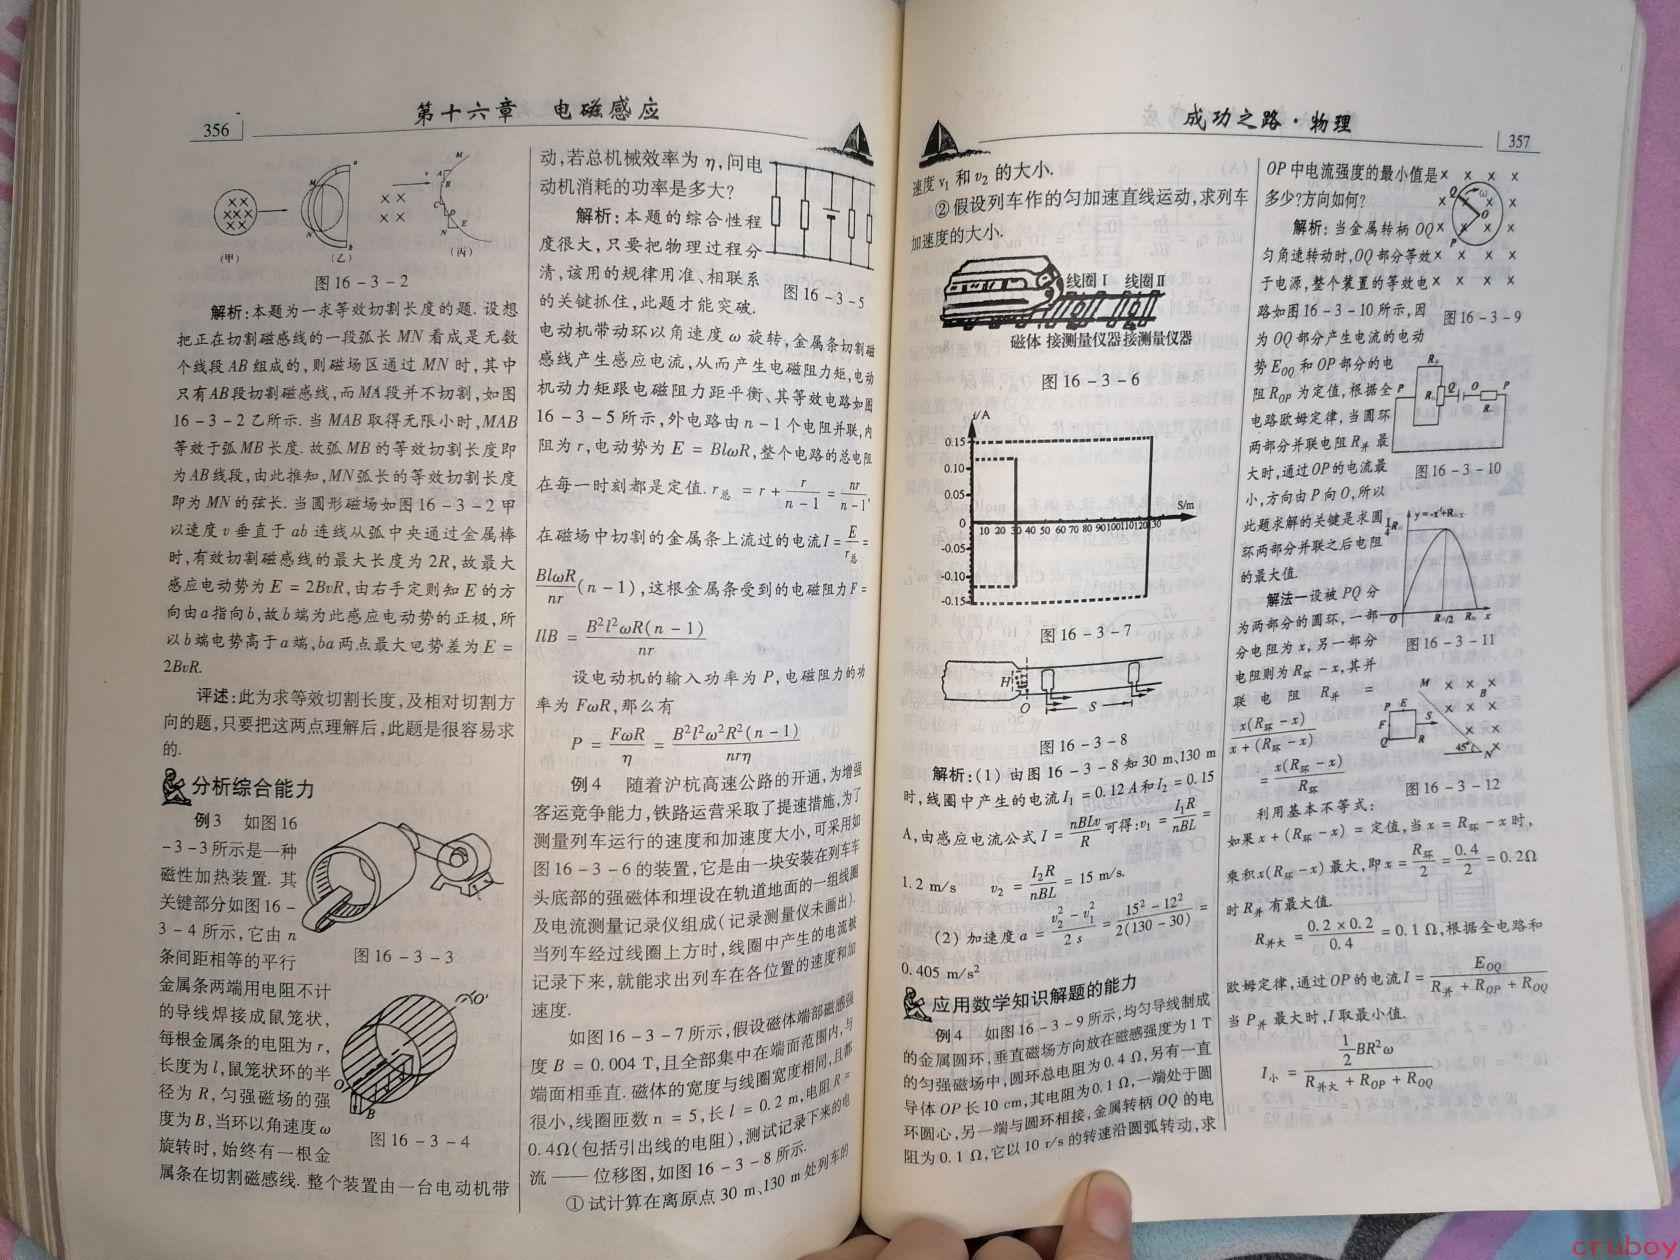 356
第十六章 电磁感应
(甲)
(乙)
(丙)
图16-3-2
解析:本题为一求等效切割长度的题. 设想
把正在切割磁感线的一段弧长 MN 看成是无数
个线段 AB 组成的, 则磁场区通过 MN 时, 其中
只有AB段切割磁感线,而MA段并不切割,如图
16-3-2乙所示. 当 MAB 取得无限小时,MAB
等效于弧 MB 长度. 故弧 MB 的等效切割长度即
为AB线段,由此推知,MN弧长的等效切割长度
即为 MN 的弦长. 当圆形磁场如图 16-3-2 甲
以速度 v 垂直于 ab 连线从弧中央通过金属棒
时,有效切割磁感线的最大长度为 2R, 故最大
感应电动势为 E = 2BvR,由右手定则知 E 的方
向由a指向b,故b端为此感应电动势的正极,所
以b端电势高于a端,ba两点最大电势差为 E =
2BvR.
评述:此为求等效切割长度,及相对切割方
向的题,只要把这两点理解后,此题是很容易求
的.
分析综合能力
例3 如图16
-3-3所示是一种
磁性加热装置. 其
关键部分如图16-
3-4所示,它由 n
条间距相等的平行
金属条两端用电阻不计
的导线焊接成鼠笼状,
每根金属条的电阻为 r,
长度为 l,鼠笼状环的半
径为 R, 匀强磁场的强
度为B,当环以角速度ω
旋转时, 始终有一根金
属条在切割磁感线. 整个装置由一台电动机带
图16-3-3
图16-3-4
动,若总机械效率为 η,问电
动机消耗的功率是多大?
解析:本题的综合性程
度很大,只要把物理过程分
清,该用的规律用准、相联系
的关键抓住,此题才能突破.
图16-3-5
电动机带动环以角速度 ω 旋转,金属条切割磁
感线产生感应电流,从而产生电磁阻力矩,电动
机动力矩跟电磁阻力距平衡、其等效电路如图
16-3-5所示,外电路由 n-1个电阻并联,内
阻为 r,电动势为 E = BlωR,整个电路的总电阻
在每一时刻都是定值. r总 = r + r/(n-1) = nr/(n-1),
在磁场中切割的金属条上流过的电流 I = E/r总 =
BlωR/nr (n-1),这根金属条受到的电磁阻力 F =
IlB = B²l²ωR(n-1)/nr
设电动机的输入功率为 P,电磁阻力的功
率为 FωR,那么有
P = FωR/η = B²l²ω²R²(n-1)/nrη
例4 随着沪杭高速公路的开通,为增强
客运竞争能力,铁路运营采取了提速措施,为了
测量列车运行的速度和加速度大小,可采用如
图16-3-6的装置,它是由一块安装在列车车
头底部的强磁体和埋设在轨道地面的一组线圈
及电流测量记录仪组成(记录测量仪未画出).
当列车经过线圈上方时,线圈中产生的电流被
记录下来,就能求出列车在各位置的速度和加
速度.
如图16-3-7所示,假设磁体端部磁感强
度 B = 0.004 T,且全部集中在端面范围内,与
端面相垂直. 磁体的宽度与线圈宽度相同,且都
很小,线圈匝数 n = 5,长 l = 0.2 m,电阻 R =
0.4Ω(包括引出线的电阻),测试记录下来的电
流——位移图,如图16-3-8所示.
①试计算在离原点 30 m、130 m 处列车的
成功之路·物理
357
速度 v₁ 和 v₂ 的大小.
②假设列车作的匀加速直线运动,求列车
加速度的大小.
线圈Ⅰ 线圈Ⅱ
磁体 接测量仪器 接测量仪器
图16-3-6
i/A
0.15
0.10
0.05
0
-0.05
-0.10
-0.15
10 20 30 40 50 60 70 80 90 100 110 120 130
S/m
图16-3-7
H
O
S
图16-3-8
解析:(1) 由图 16-3-8 知 30 m、130 m
时,线圈中产生的电流 I₁ = 0.12 A 和 I₂ = 0.15
A,由感应电流公式 I = nBLv/R 可得: v₁ = I₁R/nBL =
1.2 m/s v₂ = I₂R/nBL = 15 m/s.
(2) 加速度 a = (v₂² - v₁²)/2s = (15² - 12²)/2(130-30) =
0.405 m/s²
应用数学知识解题的能力
例4 如图16-3-9所示,均匀导线制成
的金属圆环,垂直磁场方向放在磁感强度为 1 T
的匀强磁场中,圆环总电阻为 0.4 Ω,另有一直
导体 OP 长 10 cm,其电阻为 0.1 Ω,一端处于圆
环圆心,另一端与圆环相接,金属转柄 OQ 的电
阻为 0.1 Ω,它以 10 r/s 的转速沿圆弧转动,求
OP 中电流强度的最小值是
多少?方向如何?
解析:当金属转柄 OQ
匀角速转动时,OQ 部分等效
于电源,整个装置的等效电
路如图16-3-10所示,因
图16-3-9
为 OQ 部分产生电流的电动
势 EOQ 和 OP 部分的电
阻 ROP 为定值,根据全
电路欧姆定律,当圆环
两部分并联电阻 R并 最
大时,通过OP的电流最
小,方向由 P 向 O,所以
此题求解的关键是求圆
环两部分并联之后电阻
的最大值.
图16-3-10
解法一设被 PQ 分
为两部分的圆环,一部
分电阻为 x,另一部分
电阻则为 R环 - x,其并
联电阻 R并 =
x(R环 - x)/(x + (R环 - x))
= x(R环 - x)/R环
图16-3-11
M
B
P E
F
S
Q R
45°
N
图16-3-12
利用基本不等式:
如果 x + (R环 - x) = 定值,当 x = R环 - x 时,
乘积 x(R环 - x) 最大,即 x = R环/2 = 0.4/2 = 0.2Ω
时 R并 有最大值.
R并大 = 0.2×0.2/0.4 = 0.1 Ω,根据全电路和
欧姆定律,通过 OP 的电流 I = EOQ/(R并 + ROP + ROQ)
当 P并 最大时,I 取最小值.
I小 = ½BR²ω/(R并大 + ROP + ROQ)
cruboy